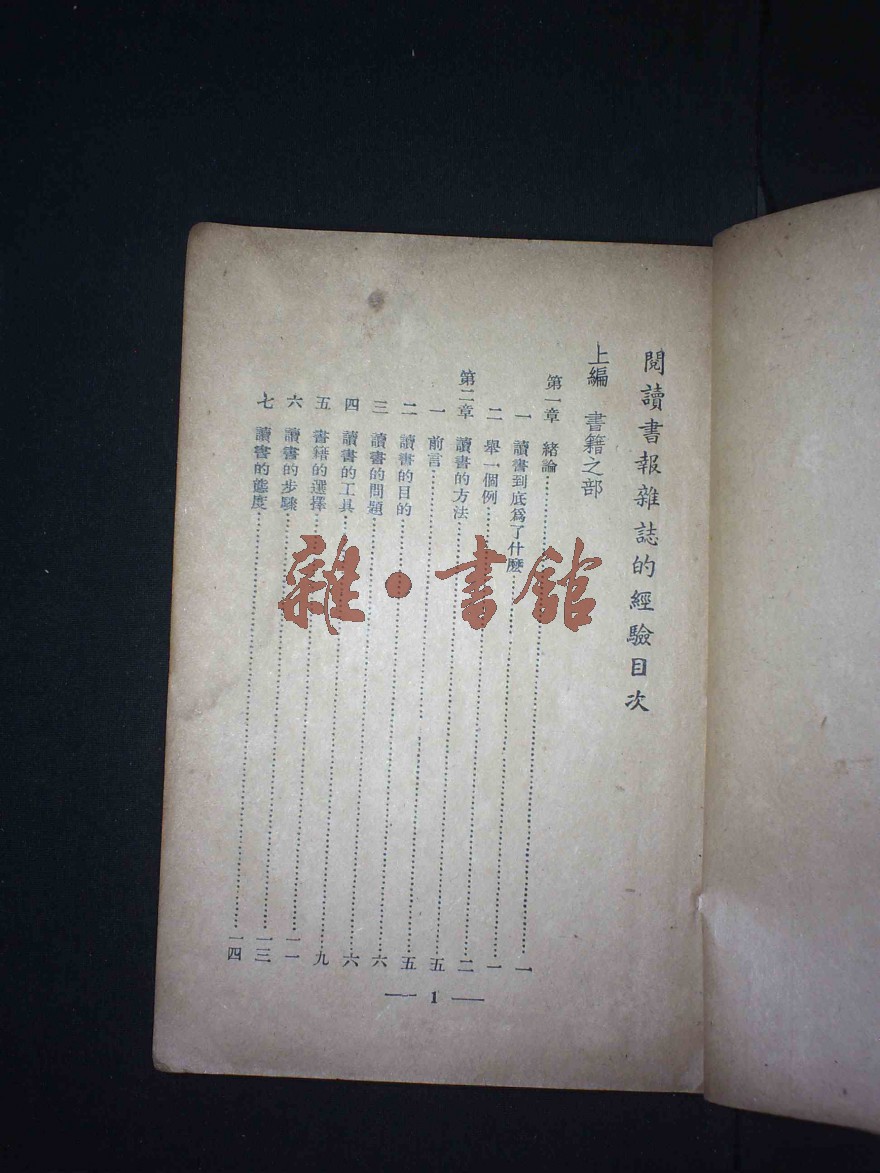 閱讀書報雜誌的經驗目次
上編 書籍之部
第一章 緒論……一
一 讀書到底爲了什麼……一
二 舉一個例……二
第二章 讀書的方法……五
一 前言……五
二 讀書的目的……六
三 讀書的問題……六
四 讀書的工具……九
五 書籍的選擇……一一
六 讀書的步驟……一三
七 讀書的態度……一四
— 1 —
雜·書館